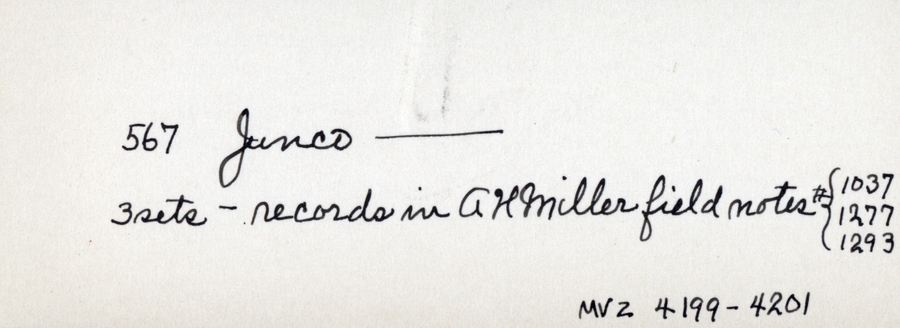 567 Junco ———
3 sets - records in AHMiller field notes # { 1037
1277
1293
MVZ 4199-4201